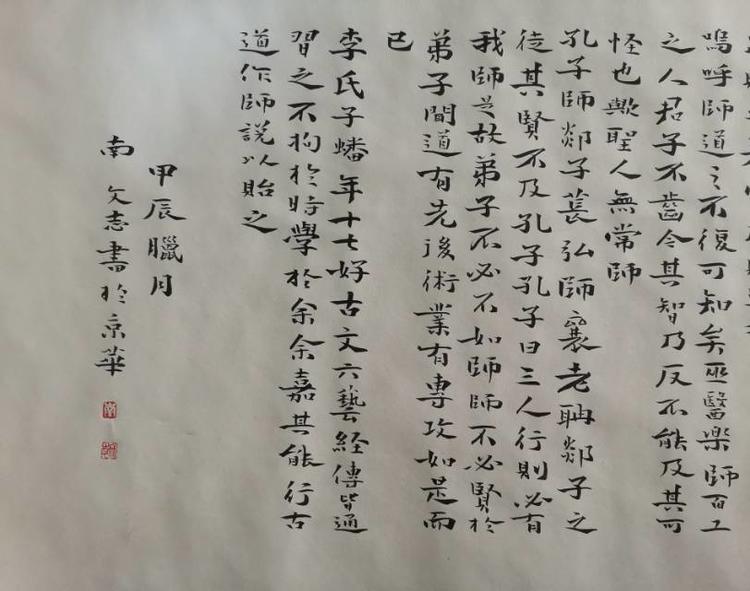 嗚呼師道之不復可知矣巫醫樂師百工
之人君子不齒今其智乃反不能及其可
怪也歟聖人無常師
孔子師郯子萇弘師襄老聃郯子之
徒其賢不及孔子孔子曰三人行則必有
我師是故弟子不必不如師師不必賢於
弟子聞道有先後術業有專攻如是而
已
李氏子蟠年十七好古文六藝經傳皆通
習之不拘於時學於余余嘉其能行古
道作師說以貽之
甲辰臘月
南文志書於京華